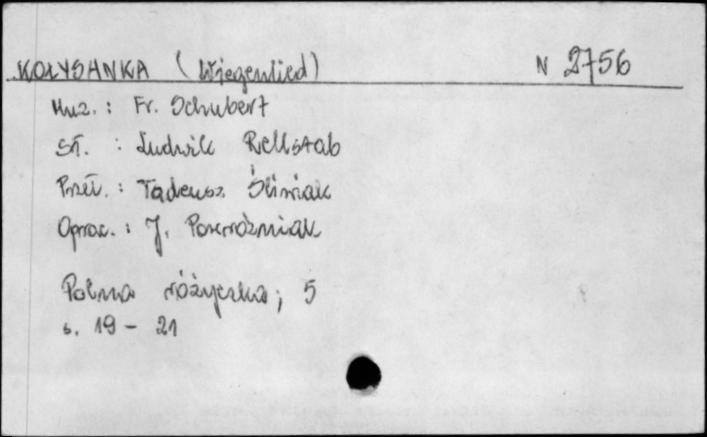 KOŁYSANKA (Wiegenlied) N 2756
Muz. : Fr. Schubert
Sł. : Ludwik Rellstab
Przeł. : Tadeusz Śliwiak
Oprac. : J. Powroźniak
Polna różyczka ; 5
s. 19 - 21